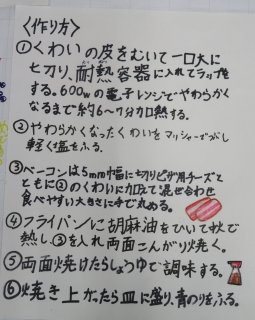 〈作り方〉
①くわいの皮をむいて一口大に
切り、耐熱容器に入れてラップを
する。600wの電子レンジでやわらかく
なるまで約6〜7分加熱する。
②やわらかくなったくわいをマッシャーでつぶし
軽く塩をふる。
③ベーコンは5mm幅に切りピザ用チーズと
ともに②のくわいに加えて混ぜ合わせ
食べやすい大きさに手で丸める。
④フライパンに胡麻油をひいて中火で
熱し、③を入れ両面こんがり焼く。
⑤両面焼けたらしょうゆで調味する。
⑥焼き上がったら皿に盛り、青のりをふる。